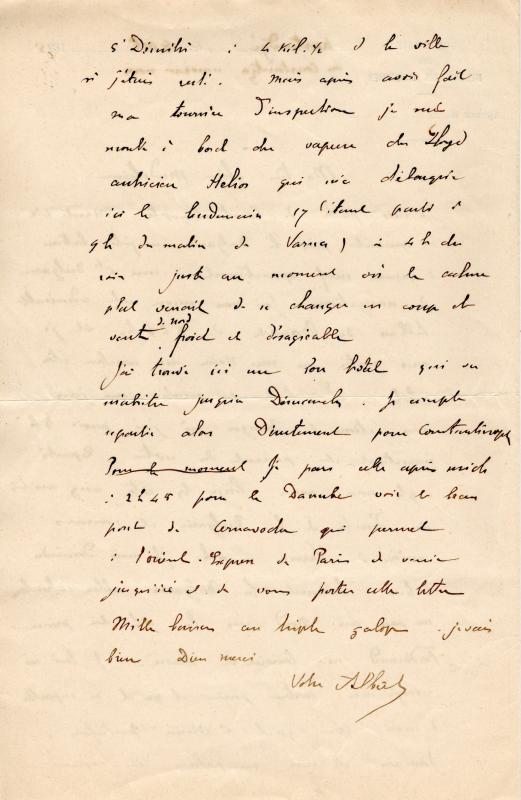 St Dimitri à 4 Kil. ½ de la ville
si j'étais resté. Mais après avoir fait
ma tournée d'inspection je suis
monté à bord du vapeur du Lloyd
autrichien Helios qui m'a débarqué
ici le lendemain 17 (étant parti à
9h du matin de Varna) à 4h du
soir juste au moment où le calme
plat venait de se changer en coup de
vent de nord froid et désagréable
J'ai trouvé ici un bon hôtel qui va
m'abriter jusqu'à Dimanche. Je compte
repartir alors Directement pour Constantinople
Pour le moment Je pars cette après midi
à 2h45 pour le Danube voir le beau
pont de Cernavoda qui permet
à l'orient-Express de Paris de venir
jusqu'ici et de vous porter cette lettre
Mille baisers au triple galop. je vais
bien Dieu merci
Votre Albert